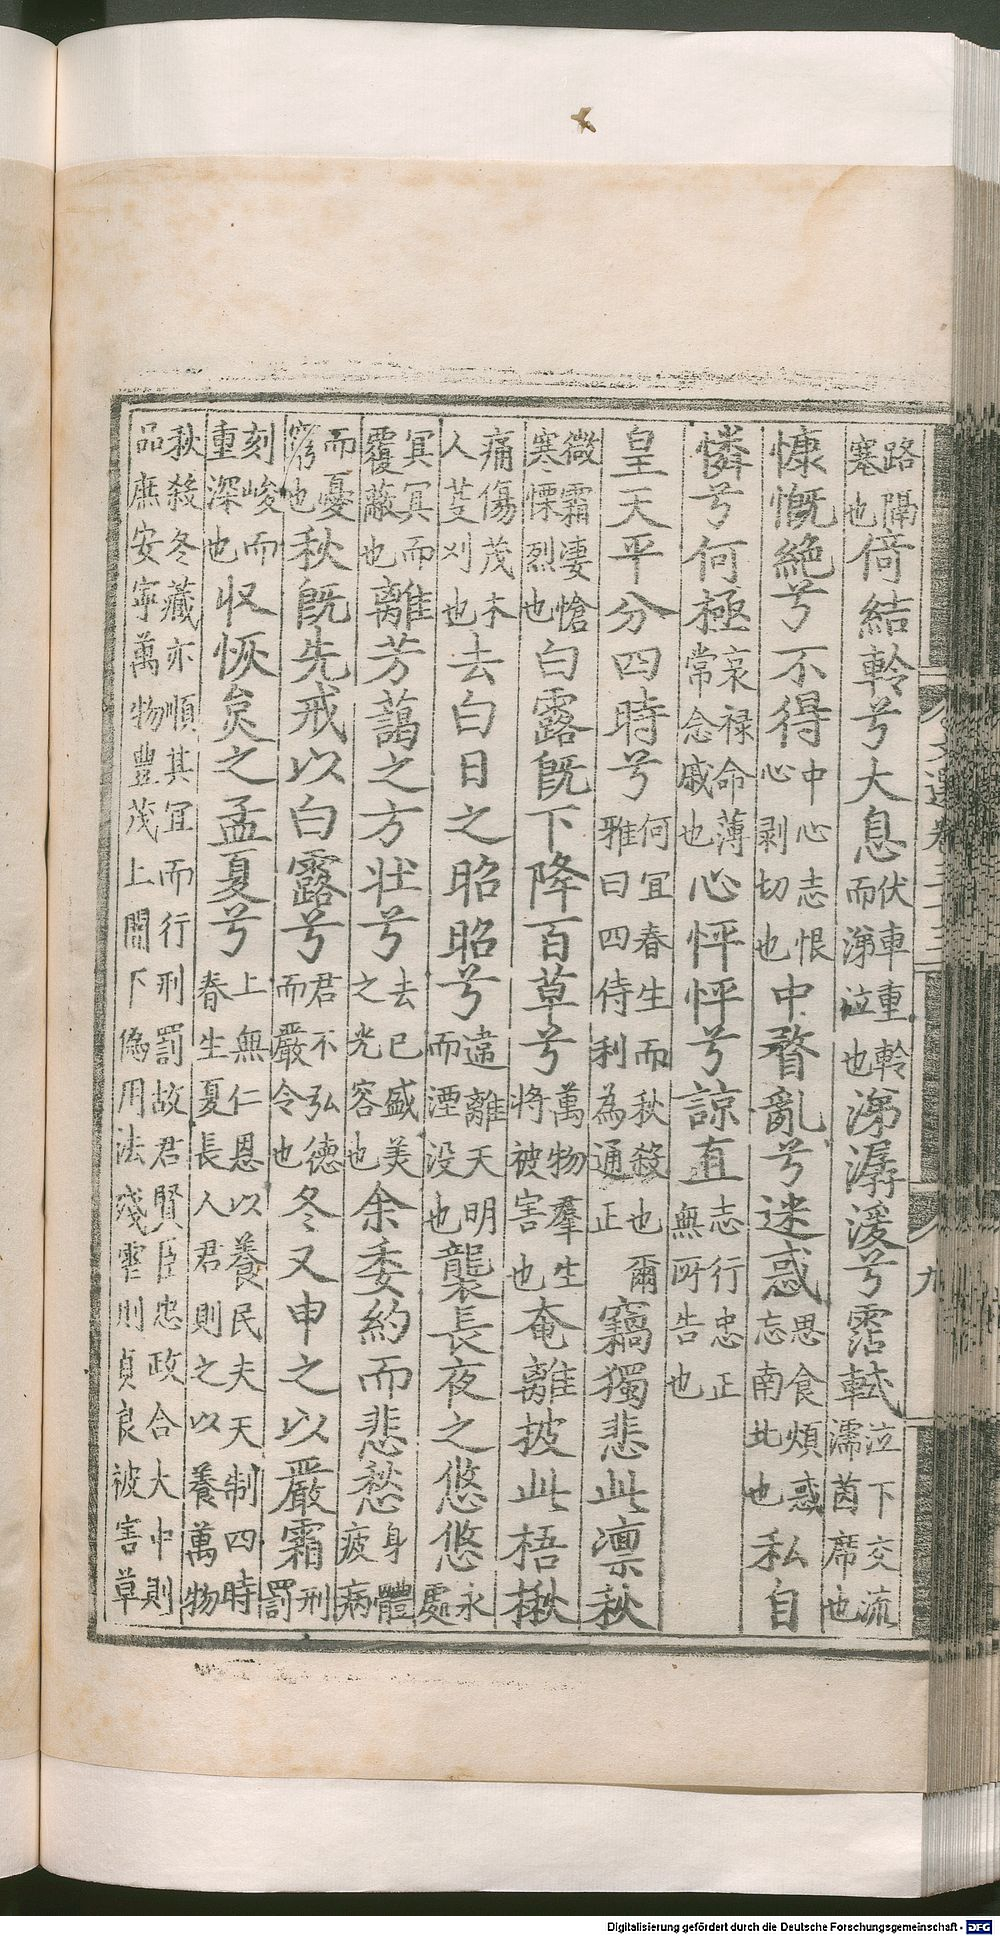 路隔塞也倚結軨兮大息伏車重軨而涕泣也涕潺湲兮霑軾泣下交流濡茵席也
慷慨絶兮不得中心志恨心剥切也中瞀亂兮迷惑思食煩惑忘南北也私自
憐兮何極哀禄命薄常念戚也心怦怦兮諒直志行忠正無所告也
皇天平分四時兮何宜春生而秋殺也爾雅曰四侍利為通正竊獨悲此凛秋
微霜淒愴寒慄烈也白露旣下降百草兮萬物羣生將被害也奄離披此梧楸
痛傷茂木人芟刈也去白日之昭昭兮違離天明而湮没也襲長夜之悠悠永處
冥冥而覆蔽也離芳藹之方壮兮去已盛美之光容也余委約而悲愁身體疲病
而憂窮也秋旣先戒以白露兮君不弘德而嚴令也冬又申之以嚴霜刑罰
刻峻而重深也収恢炱之孟夏兮上無仁恩以養民夫天制四時春生夏長人君則之以養萬物
秋殺冬藏亦順其宜而行刑罰故君賢臣忠政合大中則品庶安寧萬物豐茂上闇下僞用法殘虐則貞良被害草
文選卷三十三
九
Digitalisierung gefördert durch die Deutsche Forschungsgemeinschaft - DFG